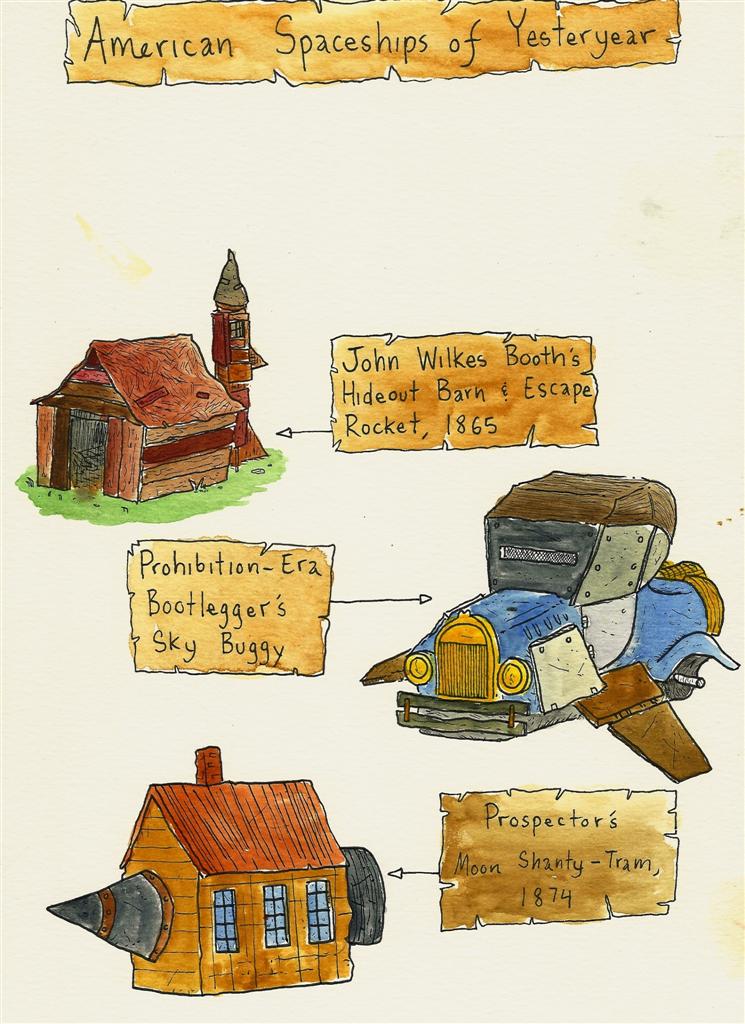 American Spaceships of Yesteryear
John Wilkes Booth's
Hideout Barn & Escape
Rocket, 1865
Prohibition-Era
Bootlegger's
Sky Buggy
Prospector's
Moon Shanty-Tram,
1874